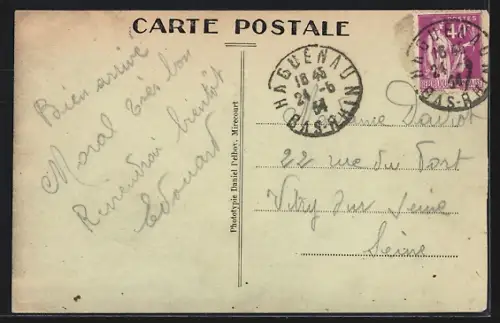 CARTE POSTALE
Bien arrivé
Moral très bon
Reviendrai bientôt
Edouard
Phototypie Daniel Delboy, Mirecourt
HAGUENAU
16 45
24 -6
34
BAS-RHIN
40c
HAGUENAU
16 45
BAS-RHIN
22 rue du Port
Vitry sur Seine
Seine